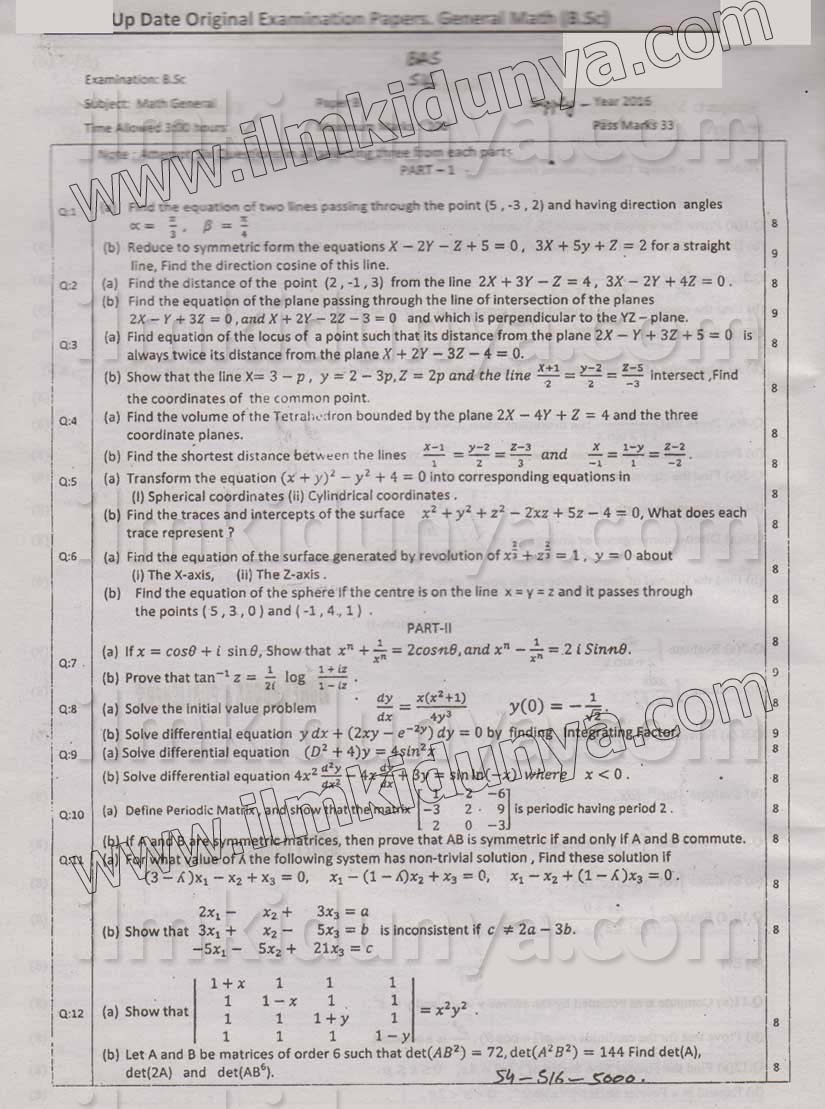 Up Date Original Examination Papers. General Math (B.Sc)
Examination: B.Sc
Subject: Math General Paper B Supply – Year 2016
Time Allowed 3:00 hours Pass Marks 33
Note : three from each parts
PART – 1
Q:1 (a) Find the equation of two lines passing through the point (5 , -3 , 2) and having direction angles
∝ = π/3 , β = π/4 8
(b) Reduce to symmetric form the equations X − 2Y − Z + 5 = 0 , 3X + 5y + Z = 2 for a straight 9
line, Find the direction cosine of this line.
Q:2 (a) Find the distance of the point (2 , -1 , 3) from the line 2X + 3Y − Z = 4 , 3X − 2Y + 4Z = 0 . 8
(b) Find the equation of the plane passing through the line of intersection of the planes
2X − Y + 3Z = 0 , and X + 2Y − 2Z − 3 = 0 and which is perpendicular to the YZ – plane. 9
Q:3 (a) Find equation of the locus of a point such that its distance from the plane 2X − Y + 3Z + 5 = 0 is
always twice its distance from the plane X + 2Y − 3Z − 4 = 0. 8
(b) Show that the line X= 3 − p , y = 2 − 3p, Z = 2p and the line X+1/2 = y−2/2 = Z−5/−3 intersect ,Find
the coordinates of the common point. 8
Q:4 (a) Find the volume of the Tetrahedron bounded by the plane 2X − 4Y + Z = 4 and the three
coordinate planes. 8
(b) Find the shortest distance between the lines X−1/1 = y−2/2 = Z−3/3 and X/−1 = 1−y/1 = Z−2/−2 . 8
Q:5 (a) Transform the equation (x + y)² − y² + 4 = 0 into corresponding equations in
(I) Spherical coordinates (ii) Cylindrical coordinates . 8
(b) Find the traces and intercepts of the surface x² + y² + z² − 2xz + 5z − 4 = 0, What does each
trace represent ? 8
Q:6 (a) Find the equation of the surface generated by revolution of x^2/3 + z^2/3 = 1 , y = 0 about
(i) The X-axis, (ii) The Z-axis . 8
(b) Find the equation of the sphere if the centre is on the line x = y = z and it passes through
the points ( 5 , 3 , 0 ) and ( -1 , 4 , 1 ) . 8
PART-II
Q:7 (a) If x = cosθ + i sin θ, Show that xⁿ + 1/xⁿ = 2cosnθ, and xⁿ − 1/xⁿ = 2 i Sinnθ. 8
(b) Prove that tan⁻¹ z = 1/2i log 1 + iz/1 − iz . 9
Q:8 (a) Solve the initial value problem dy/dx = x(x²+1)/4y³ y(0) = − 1/√2 . 8
(b) Solve differential equation y dx + (2xy − e⁻²ʸ) dy = 0 by finding (Integrating Factor) 9
Q:9 (a) Solve differential equation (D² + 4)y = 4sin²x 8
(b) Solve differential equation 4x² d²y/dx² − 4x dy/dx + 3y = sin ln(−x) where x < 0 . 8
Q:10 (a) Define Periodic Matrix, and show that the matrix [1 2 −6
−3 2 9
2 0 −3] is periodic having period 2 . 8
(b) If A and B are symmetric matrices, then prove that AB is symmetric if and only if A and B commute. 8
Q:11 (a) For what value of ʎ the following system has non-trivial solution , Find these solution if
(3 − ʎ)x₁ − x₂ + x₃ = 0, x₁ − (1 − ʎ)x₂ + x₃ = 0, x₁ − x₂ + (1 − ʎ)x₃ = 0 . 8
2x₁ − x₂ + 3x₃ = a
(b) Show that 3x₁ + x₂ − 5x₃ = b is inconsistent if c ≠ 2a − 3b. 8
−5x₁ − 5x₂ + 21x₃ = c
1 + x 1 1 1
1 1 − x 1 1
Q:12 (a) Show that = x²y² . 8
1 1 1 + y 1
1 1 1 1 − y
(b) Let A and B be matrices of order 6 such that det(AB²) = 72, det(A²B²) = 144 Find det(A),
det(2A) and det(AB⁶). 8
S4 – S16 – 5000 .
www.ilmkidunya.com
www.ilmkidunya.com
ilmkidunya.com
ilmkidunya.com
ilmkidunya.com
ilmkidunya.com
ilmkidunya.com